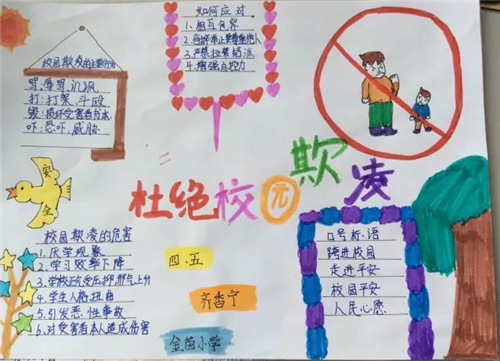 如何应对
1、相互包容
2、
3、严禁拉帮结派
4、增强自控力
校园欺凌的主要行为
骂:辱骂、讥讽
打:打架 斗殴
毁:损坏受害者书本
吓:恐吓、威胁
安
全
杜绝校园欺凌
校园欺凌的危害
1、厌学现象
2、学习效率下降
3、学校正气受压抑邪气上升
4、学生人格扭曲
5、引发恶性事故
6、对受害者本人造成伤害
四、五
齐杏宁
金茵小学
口号标语
踏进校园
走进平安
校园平安
人民心愿